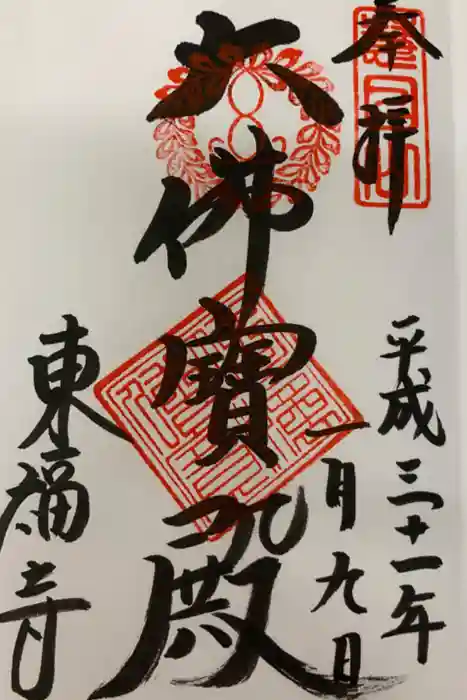 奉拝
平成三十一年
一月九日
大佛寳殿
東福寺